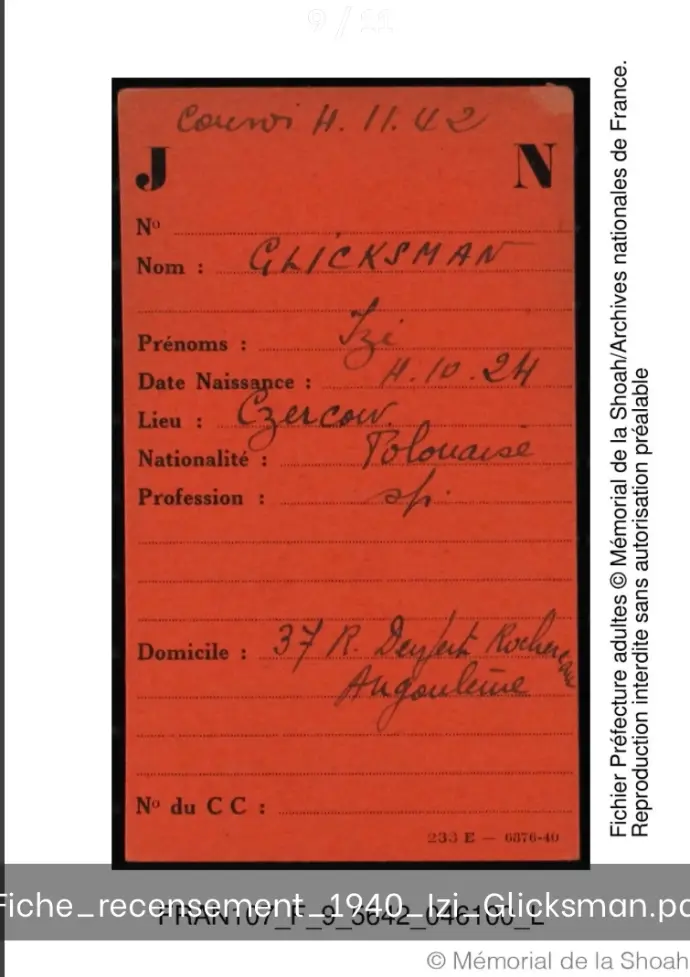 9 / 11
Convoi 4.11.42
J N
Nº
Nom : GLICKSMAN
Prénoms : Izi
Date Naissance : 4.10.24
Lieu : Czercow
Nationalité : Polonaise
Profession : sp.
Domicile : 37 R. Denfert Rochereau
Angoulême
Nº du C C :
233 E — 6876-40
Fichier Préfecture adultes © Mémorial de la Shoah/Archives nationales de France.
Reproduction interdite sans autorisation préalable
Fiche_recensement_1940_Izi_Glicksman.pd
© Mémorial de la Shoah